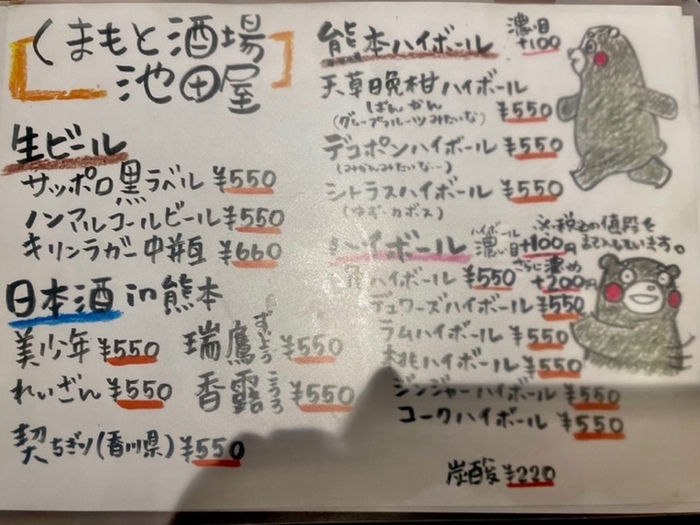 くまもと酒場
池田屋
生ビール
サッポロ黒ラベル ¥550
ノンアルコールビール ¥550
キリンラガー中瓶 ¥660
日本酒 in 熊本
美少年 ¥550 瑞鷹 ずいよう ¥550
れいざん ¥550 香露 こうろ ¥550
契 ちぎり(香川県) ¥550
熊本ハイボール 濃いめ +100
天草晩柑ハイボール
ばんかん
(グレープフルーツみたいな) ¥550
デコポンハイボール ¥550
(みかんみたいな…)
シトラスハイボール ¥550
(ゆず・カボス)
※税込の値段を
記入しています。
ハイボール ハイボール 濃い目 +100円
さらに濃め +200円
ハイボール ¥550
デュワーズハイボール ¥550
ラムハイボール ¥550
桃ハイボール ¥550
ジンジャーハイボール ¥550
コークハイボール ¥550
炭酸 ¥220